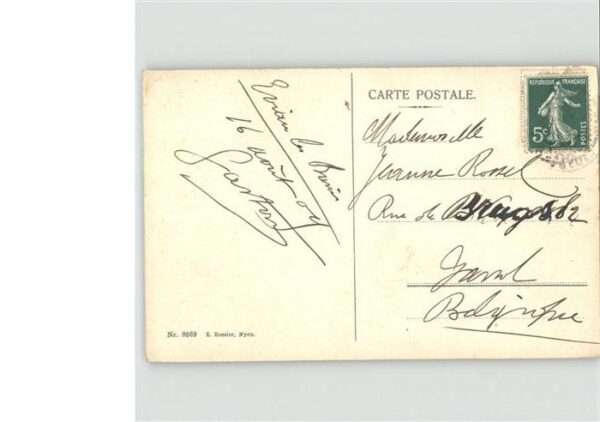 CARTE POSTALE.
REPUBLIQUE FRANÇAISE
5c
POSTES
Evian les Bains
16 août 07
Gaston
Mademoiselle
Jeanne Rossel
Rue de Bruges 82
Gand
Belgique
Nr. 8669 E. Rossier, Nyon.